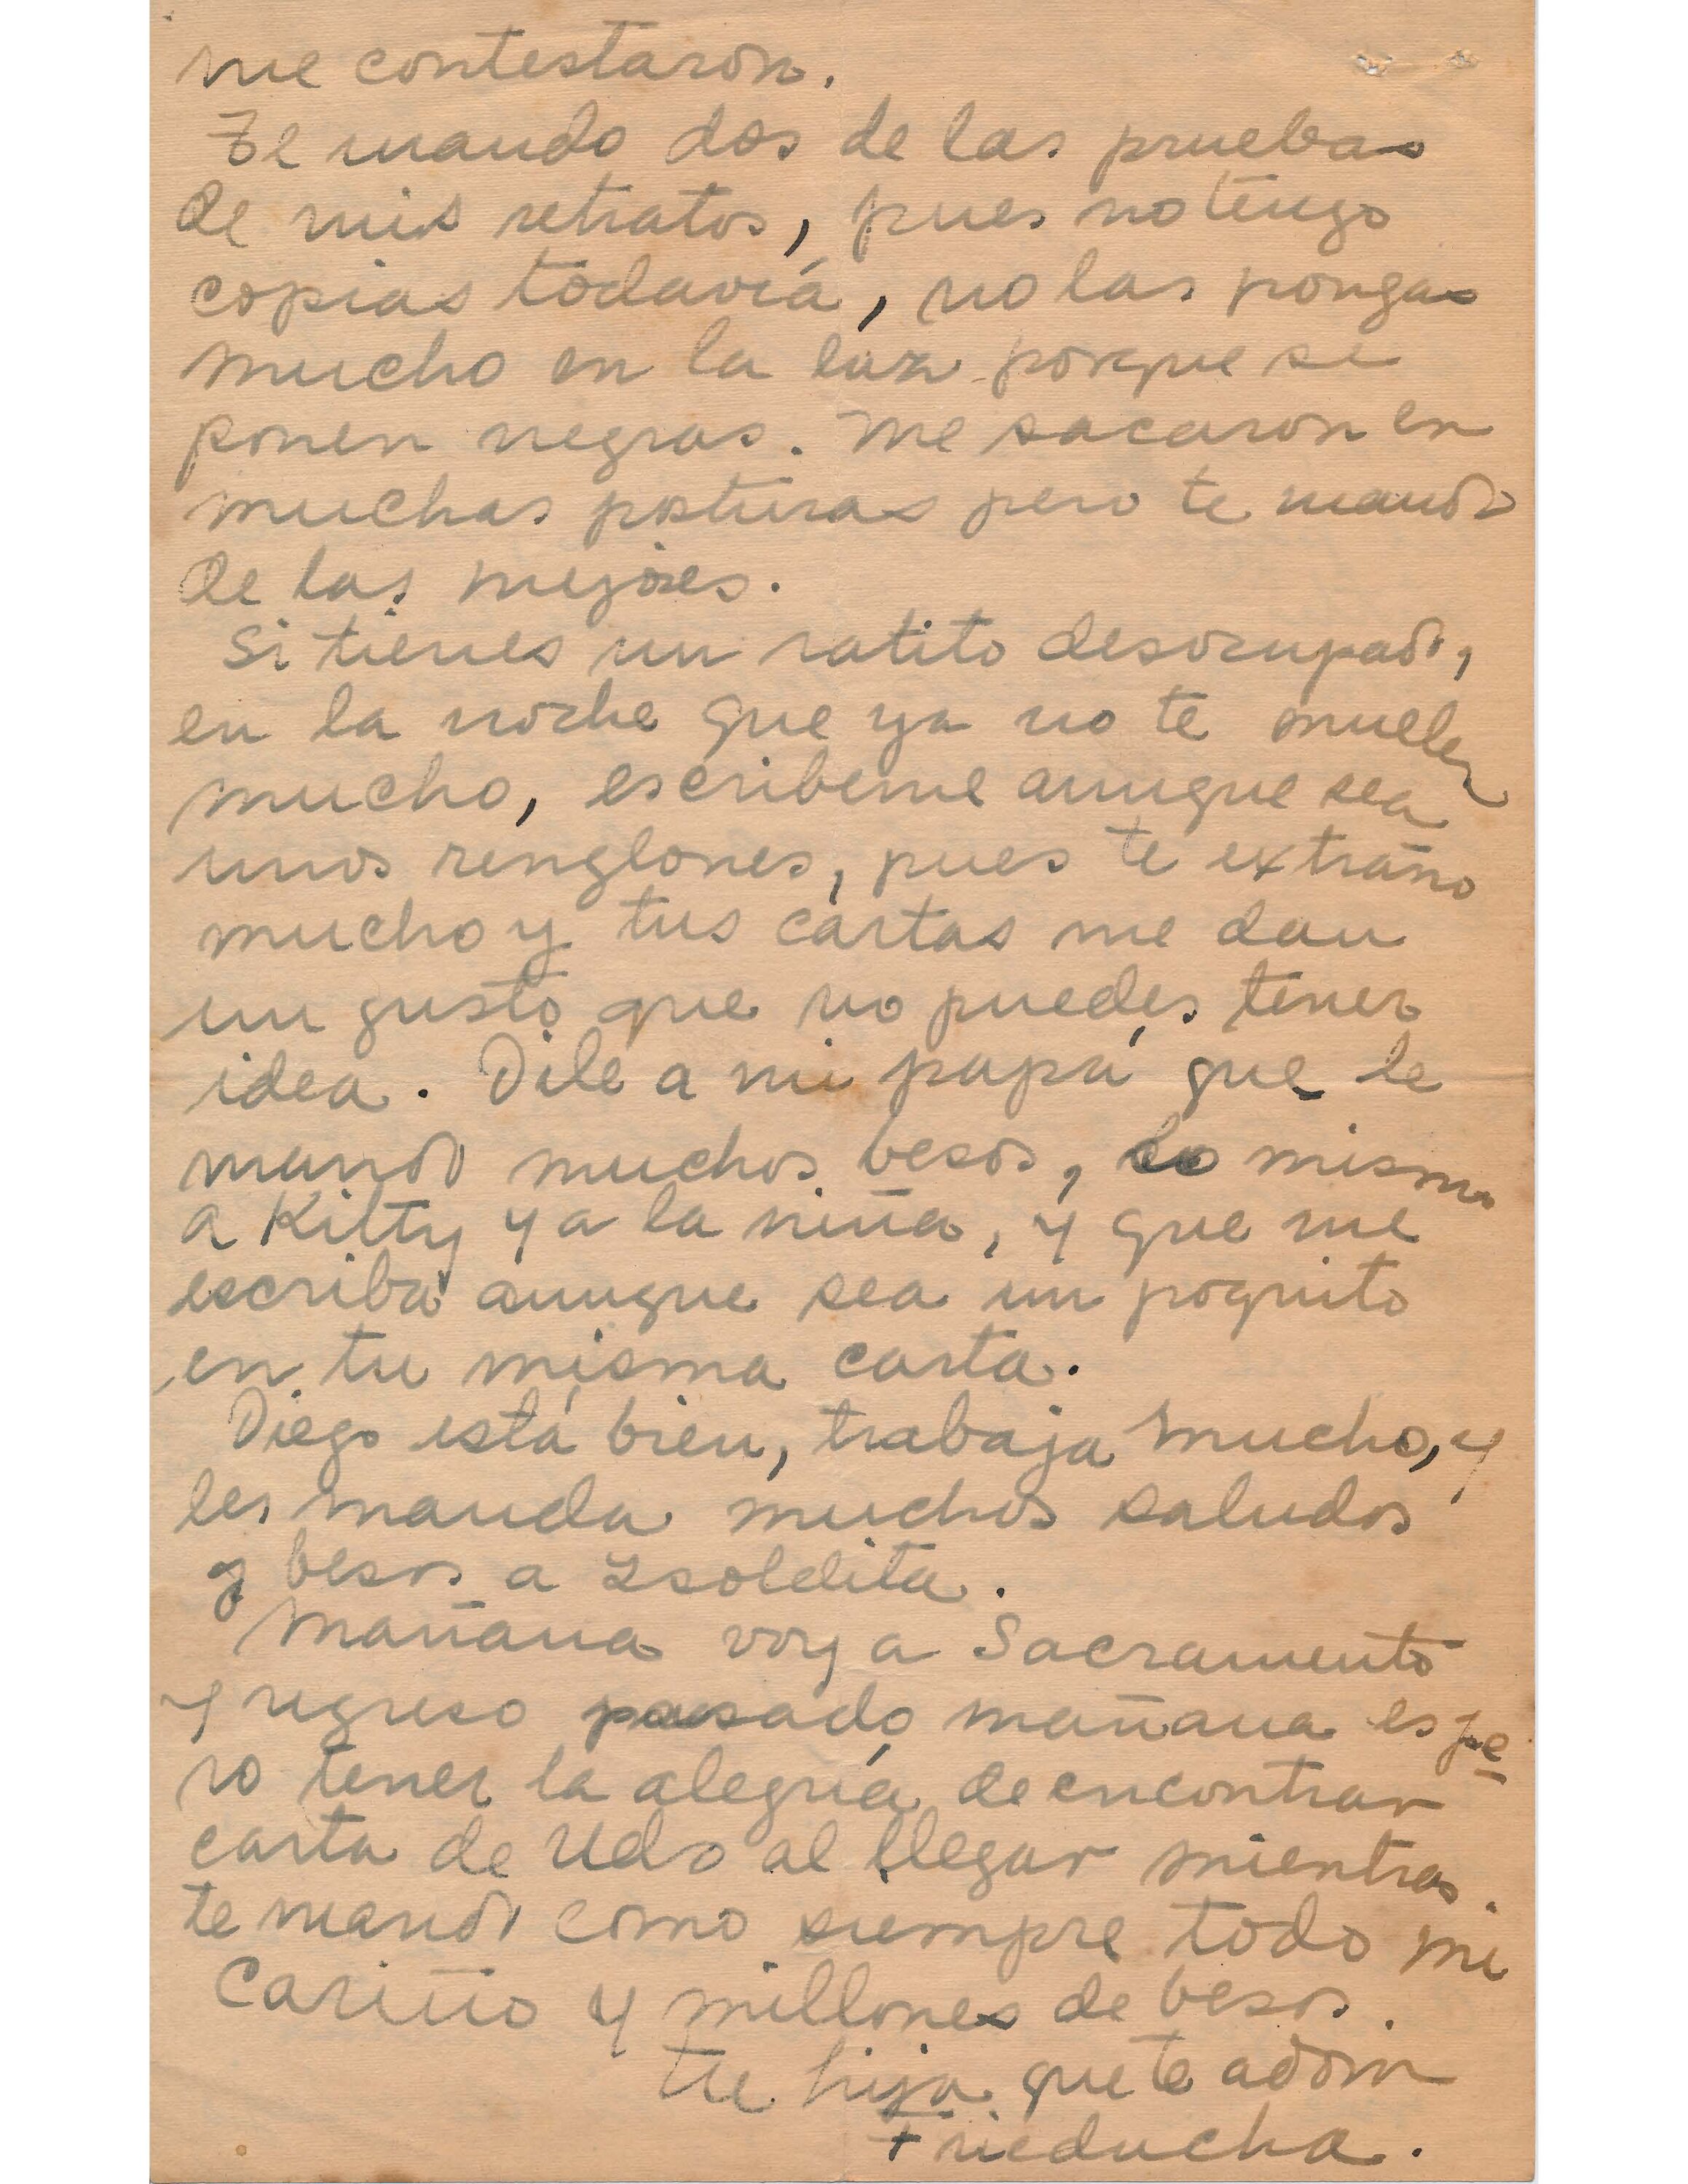 me contestaron.
Te mando dos de las pruebas
de mis retratos, pues no tengo
copias todavía, no las pongas
mucho en la luz porque se
ponen negras. Me sacaron en
muchas posturas pero te mando
de las mejores.
Si tienes un ratito desocupado,
en la noche que ya no te muelen
mucho, escribeme aunque sea
unos renglones, pues te extraño
mucho y tus cartas me dan
un gusto que no puedes tener
idea. Dile a mi papá que le
mando muchos besos, lo mismo
a Kitty y a la niña, y que me
escriba aunque sea un poquito
en tu misma carta.
Diego está bien, trabaja mucho, y
les manda muchos saludos
y besos a Isoldita.
Mañana voy a Sacramento
y regreso pasado mañana espe
ro tener la alegría de encontrar
carta de Uds al llegar mientras.
te mando como siempre todo mi
Cariño y millones de besos.
Tu hija que te adora
Frieducha.